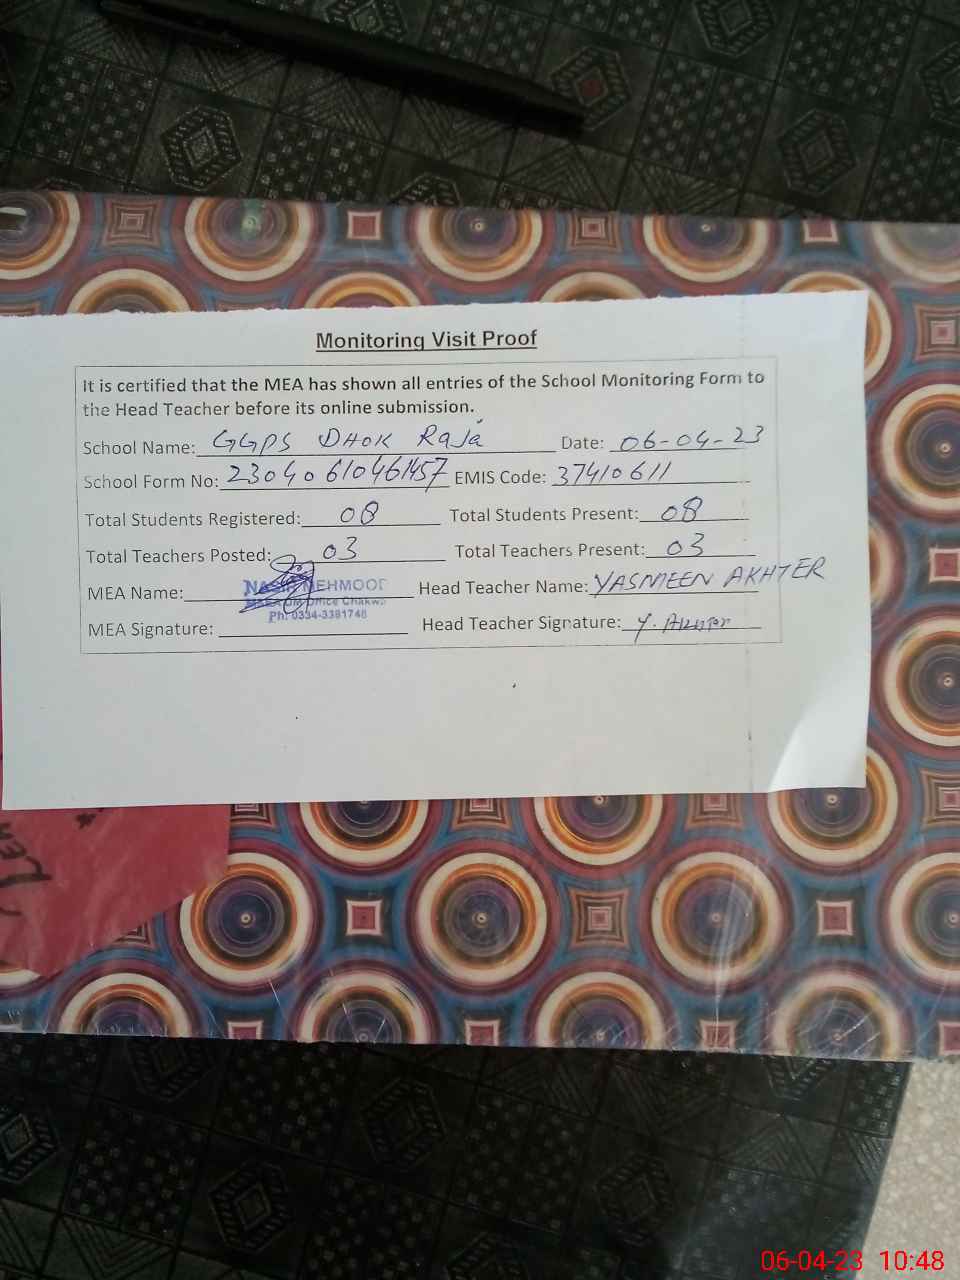 Monitoring Visit Proof
It is certified that the MEA has shown all entries of the School Monitoring Form to
the Head Teacher before its online submission.
School Name: GGPS DHOK RaJa Date: 06-04-23
School Form No: 23040610461457 EMIS Code: 37410611
Total Students Registered: 08 Total Students Present: 08
Total Teachers Posted: 03 Total Teachers Present: 03
MEA Name: NASIR MEHMOOD Head Teacher Name: YASMEEN AKHTER
Office Chakwal
Ph: 0334-3381748
MEA Signature: Head Teacher Signature: Y. Akhter
06-04-23 10:48